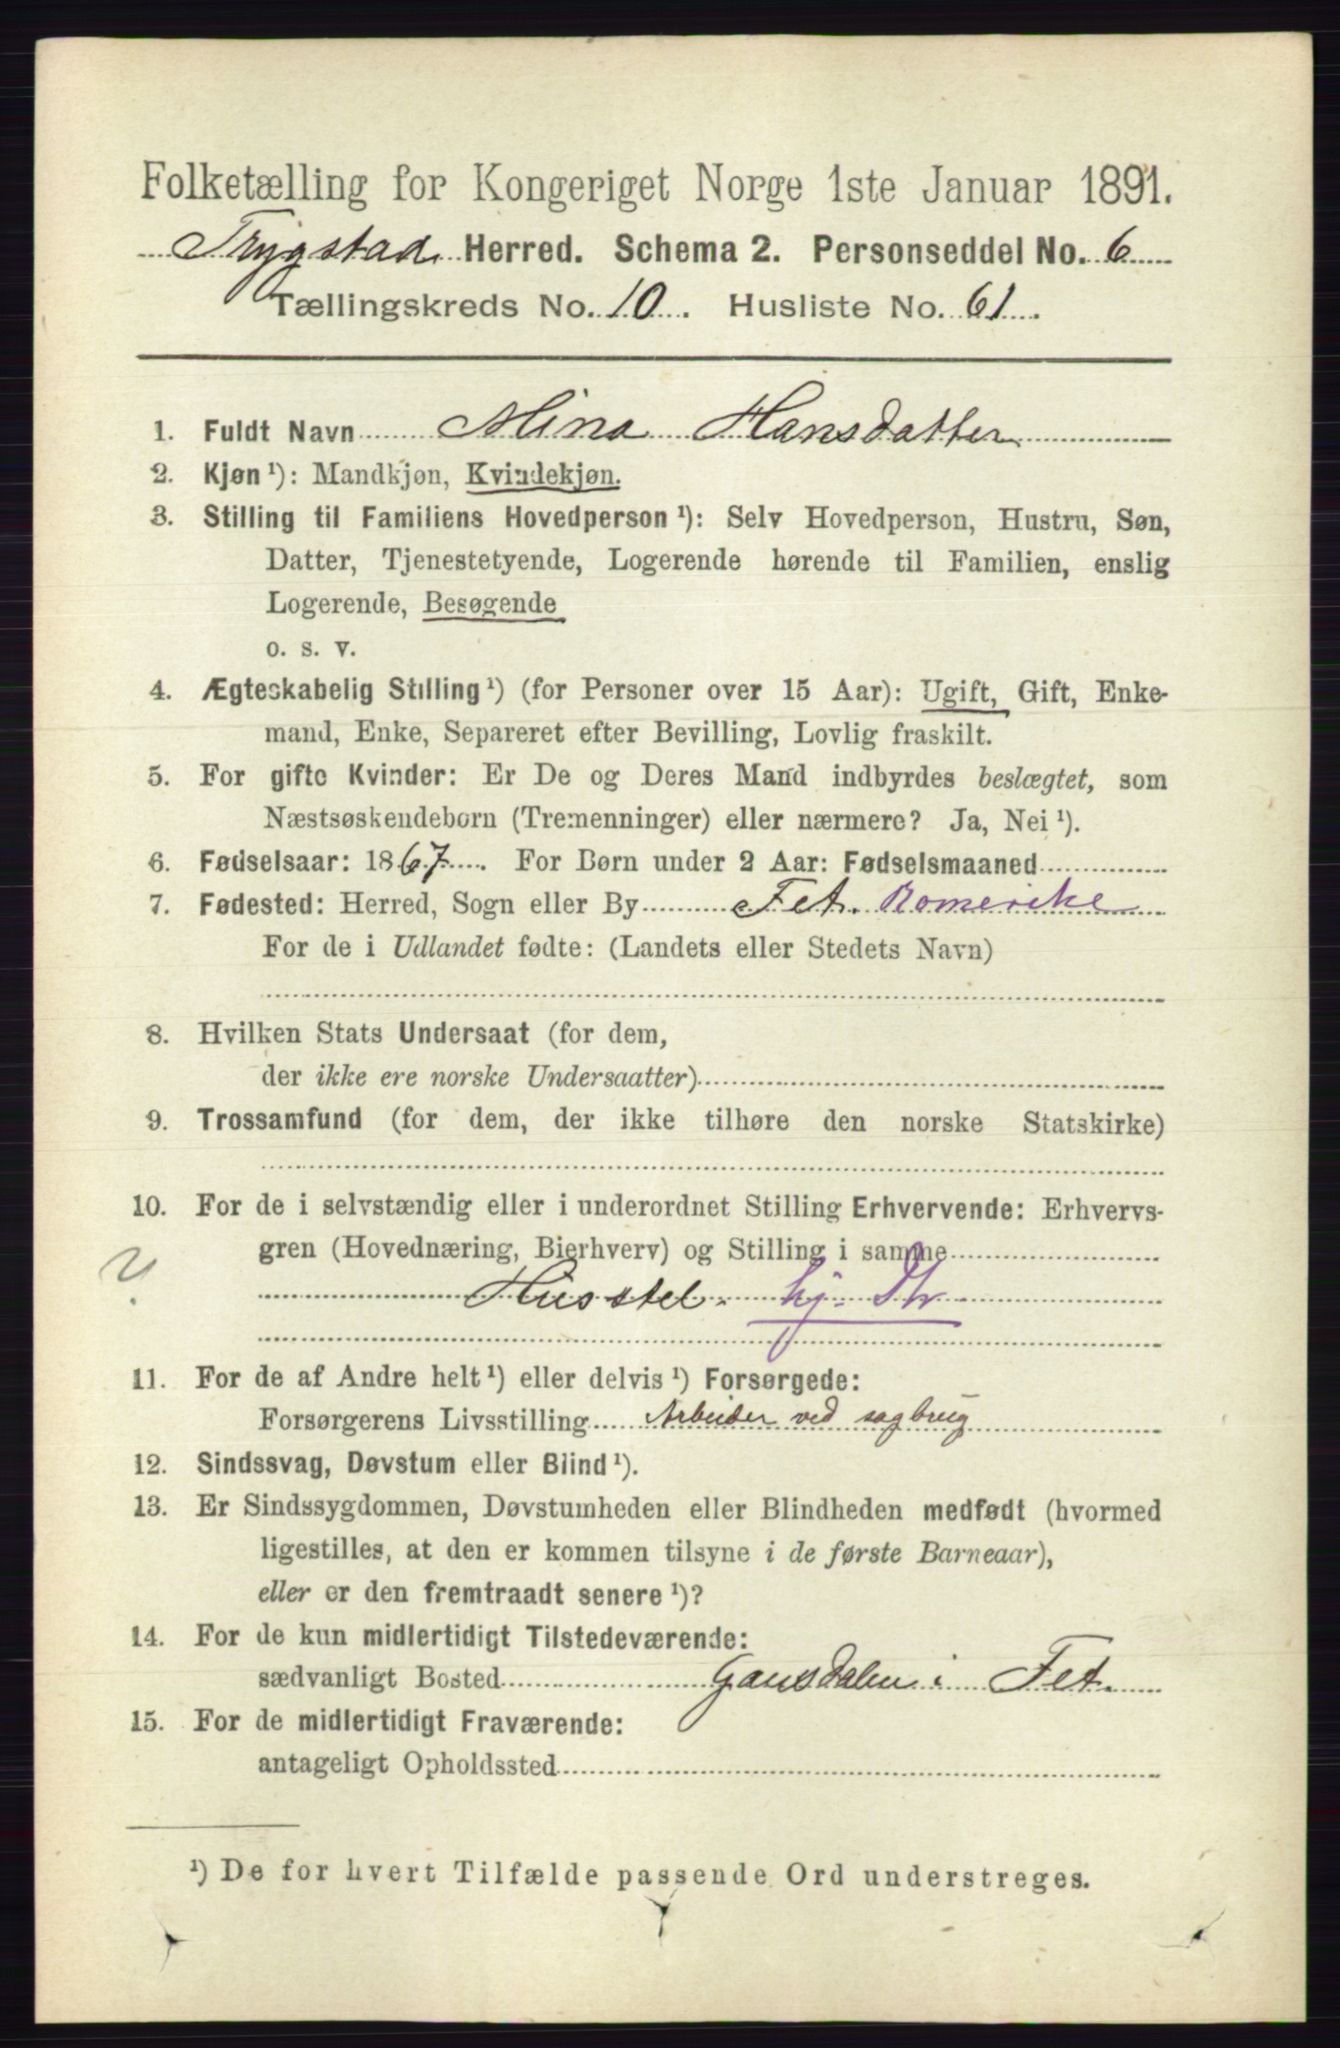 Folketælling for Kongeriget Norge 1ste Januar 1891.
Trygstad Herred. Schema 2. Personseddel No. 6
Tællingskreds No. 10. Husliste No. 61.
1. Fuldt Navn Mina Hansdatter
2. Kjøn¹): Mandkjøn, Kvindekjøn.
3. Stilling til Familiens Hovedperson¹): Selv Hovedperson, Hustru, Søn,
Datter, Tjenestetyende, Logerende hørende til Familien, enslig
Logerende, Besøgende
o. s. v.
4. Ægteskabelig Stilling¹) (for Personer over 15 Aar): Ugift, Gift, Enke-
mand, Enke, Separeret efter Bevilling, Lovlig fraskilt.
5. For gifte Kvinder: Er De og Deres Mand indbyrdes beslægtet, som
Næstsøskendebørn (Tremenninger) eller nærmere? Ja, Nei¹).
6. Fødselsaar: 1867. For Børn under 2 Aar: Fødselsmaaned
7. Fødested: Herred, Sogn eller By Fet. Romerike
For de i Udlandet fødte: (Landets eller Stedets Navn)
8. Hvilken Stats Undersaat (for dem,
der ikke ere norske Undersaatter)
9. Trossamfund (for dem, der ikke tilhøre den norske Statskirke)
10. For de i selvstændig eller i underordnet Stilling Erhvervende: Erhvervs-
gren (Hovednæring, Bierhverv) og Stilling i samme
? Husstel. hj. Dtr
11. For de af Andre helt¹) eller delvis¹) Forsørgede:
Forsørgerens Livsstilling Arbeider ved sagbrug
12. Sindssvag, Døvstum eller Blind¹).
13. Er Sindssygdommen, Døvstumheden eller Blindheden medfødt (hvormed
ligestilles, at den er kommen tilsyne i de første Barneaar),
eller er den fremtraadt senere¹)?
14. For de kun midlertidigt Tilstedeværende:
sædvanligt Bosted Gansdalen i Fet.
15. For de midlertidigt Fraværende:
antageligt Opholdssted
¹) De for hvert Tilfælde passende Ord understreges.